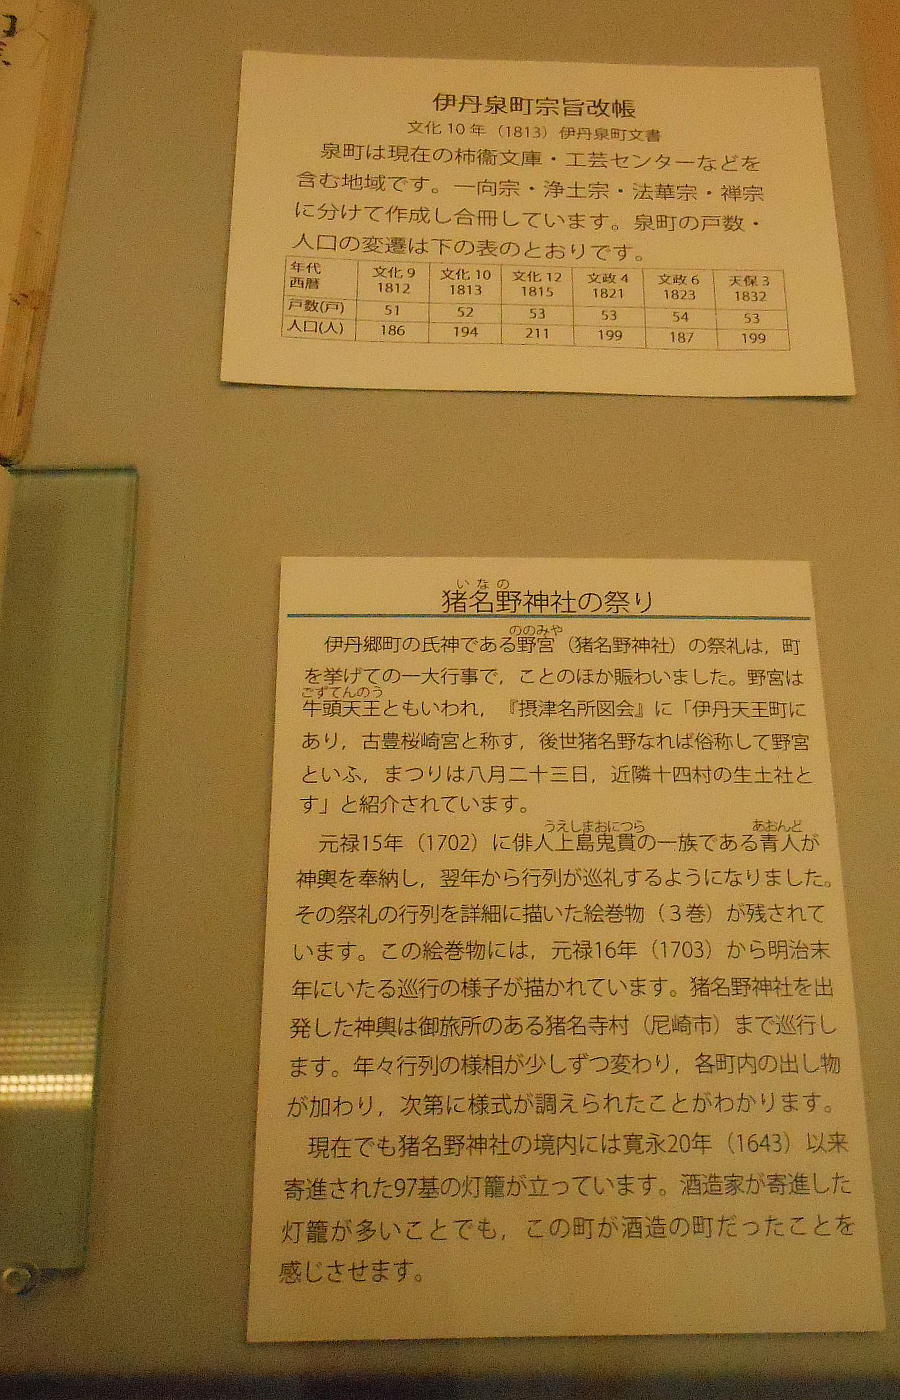 伊丹泉町宗旨改帳
文化10年（1813）伊丹泉町文書
泉町は現在の柿衞文庫・工芸センターなどを
含む地域です。一向宗・浄土宗・法華宗・禅宗
に分けて作成し合冊しています。泉町の戸数・
人口の変遷は下の表のとおりです。
年代 文化9 文化10 文化12 文政4 文政6 天保3
西暦 1812 1813 1815 1821 1823 1832
戸数(戸) 51 52 53 53 54 53
人口(人) 186 194 211 199 187 199
いなの
猪名野神社の祭り
ののみや
伊丹郷町の氏神である野宮（猪名野神社）の祭礼は，町
を挙げての一大行事で，ことのほか賑わいました。野宮は
ごずてんのう
牛頭天王ともいわれ，『摂津名所図会』に「伊丹天王町に
あり，古豊桜崎宮と称す，後世猪名野なれば俗称して野宮
といふ，まつりは八月二十三日，近隣十四村の生土社と
す」と紹介されています。
うえしまおにつら あおんど
元禄15年（1702）に俳人上島鬼貫の一族である青人が
神輿を奉納し，翌年から行列が巡礼するようになりました。
その祭礼の行列を詳細に描いた絵巻物（３巻）が残されて
います。この絵巻物には，元禄16年（1703）から明治末
年にいたる巡行の様子が描かれています。猪名野神社を出
発した神輿は御旅所のある猪名寺村（尼崎市）まで巡行し
ます。年々行列の様相が少しずつ変わり，各町内の出し物
が加わり，次第に様式が調えられたことがわかります。
現在でも猪名野神社の境内には寛永20年（1643）以来
寄進された97基の灯籠が立っています。酒造家が寄進した
灯籠が多いことでも，この町が酒造の町だったことを
感じさせます。